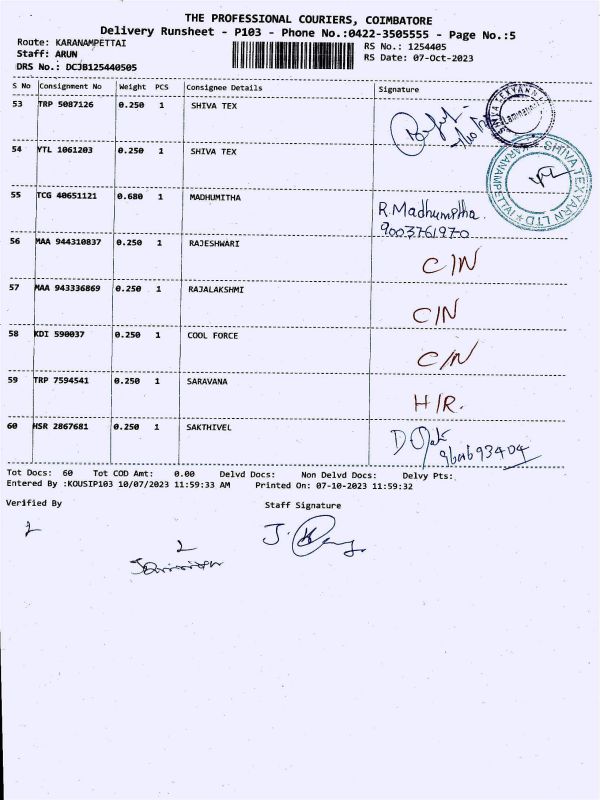 THE PROFESSIONAL COURIERS, COIMBATORE
Delivery Runsheet - P103 - Phone No.:0422-3505555 - Page No.:5
Route: KARANAMPETTAI
RS No.: 1254405
Staff: ARUN
RS Date: 07-Oct-2023
DRS No.: DCJB125440505
S No Consignment No Weight PCS Consignee Details Signature
53 TRP 5087126 0.250 1 SHIVA TEX
54 YTL 1061203 0.250 1 SHIVA TEX
SHIVA TEXYARN LTD
KARANAMPETTAI
55 TCG 40651121 0.680 1 MADHUMITHA R.Madhumitha.
9003761970
56 MAA 944310837 0.250 1 RAJESHWARI C/N
57 MAA 943336869 0.250 1 RAJALAKSHMI C/N
58 KDI 590037 0.250 1 COOL FORCE C/N
59 TRP 7594541 0.250 1 SARAVANA H/R.
60 HSR 2867681 0.250 1 SAKTHIVEL
Tot Docs: 60 Tot COD Amt: 0.00 Delvd Docs: Non Delvd Docs: Delvy Pts:
Entered By :KOUSIP103 10/07/2023 11:59:33 AM Printed On: 07-10-2023 11:59:32
Verified By Staff Signature